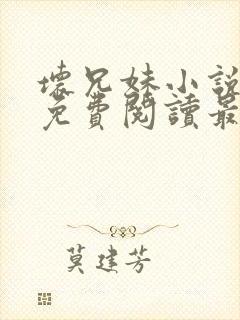 壞兄妹小說
免費閱讀最
莫建芳